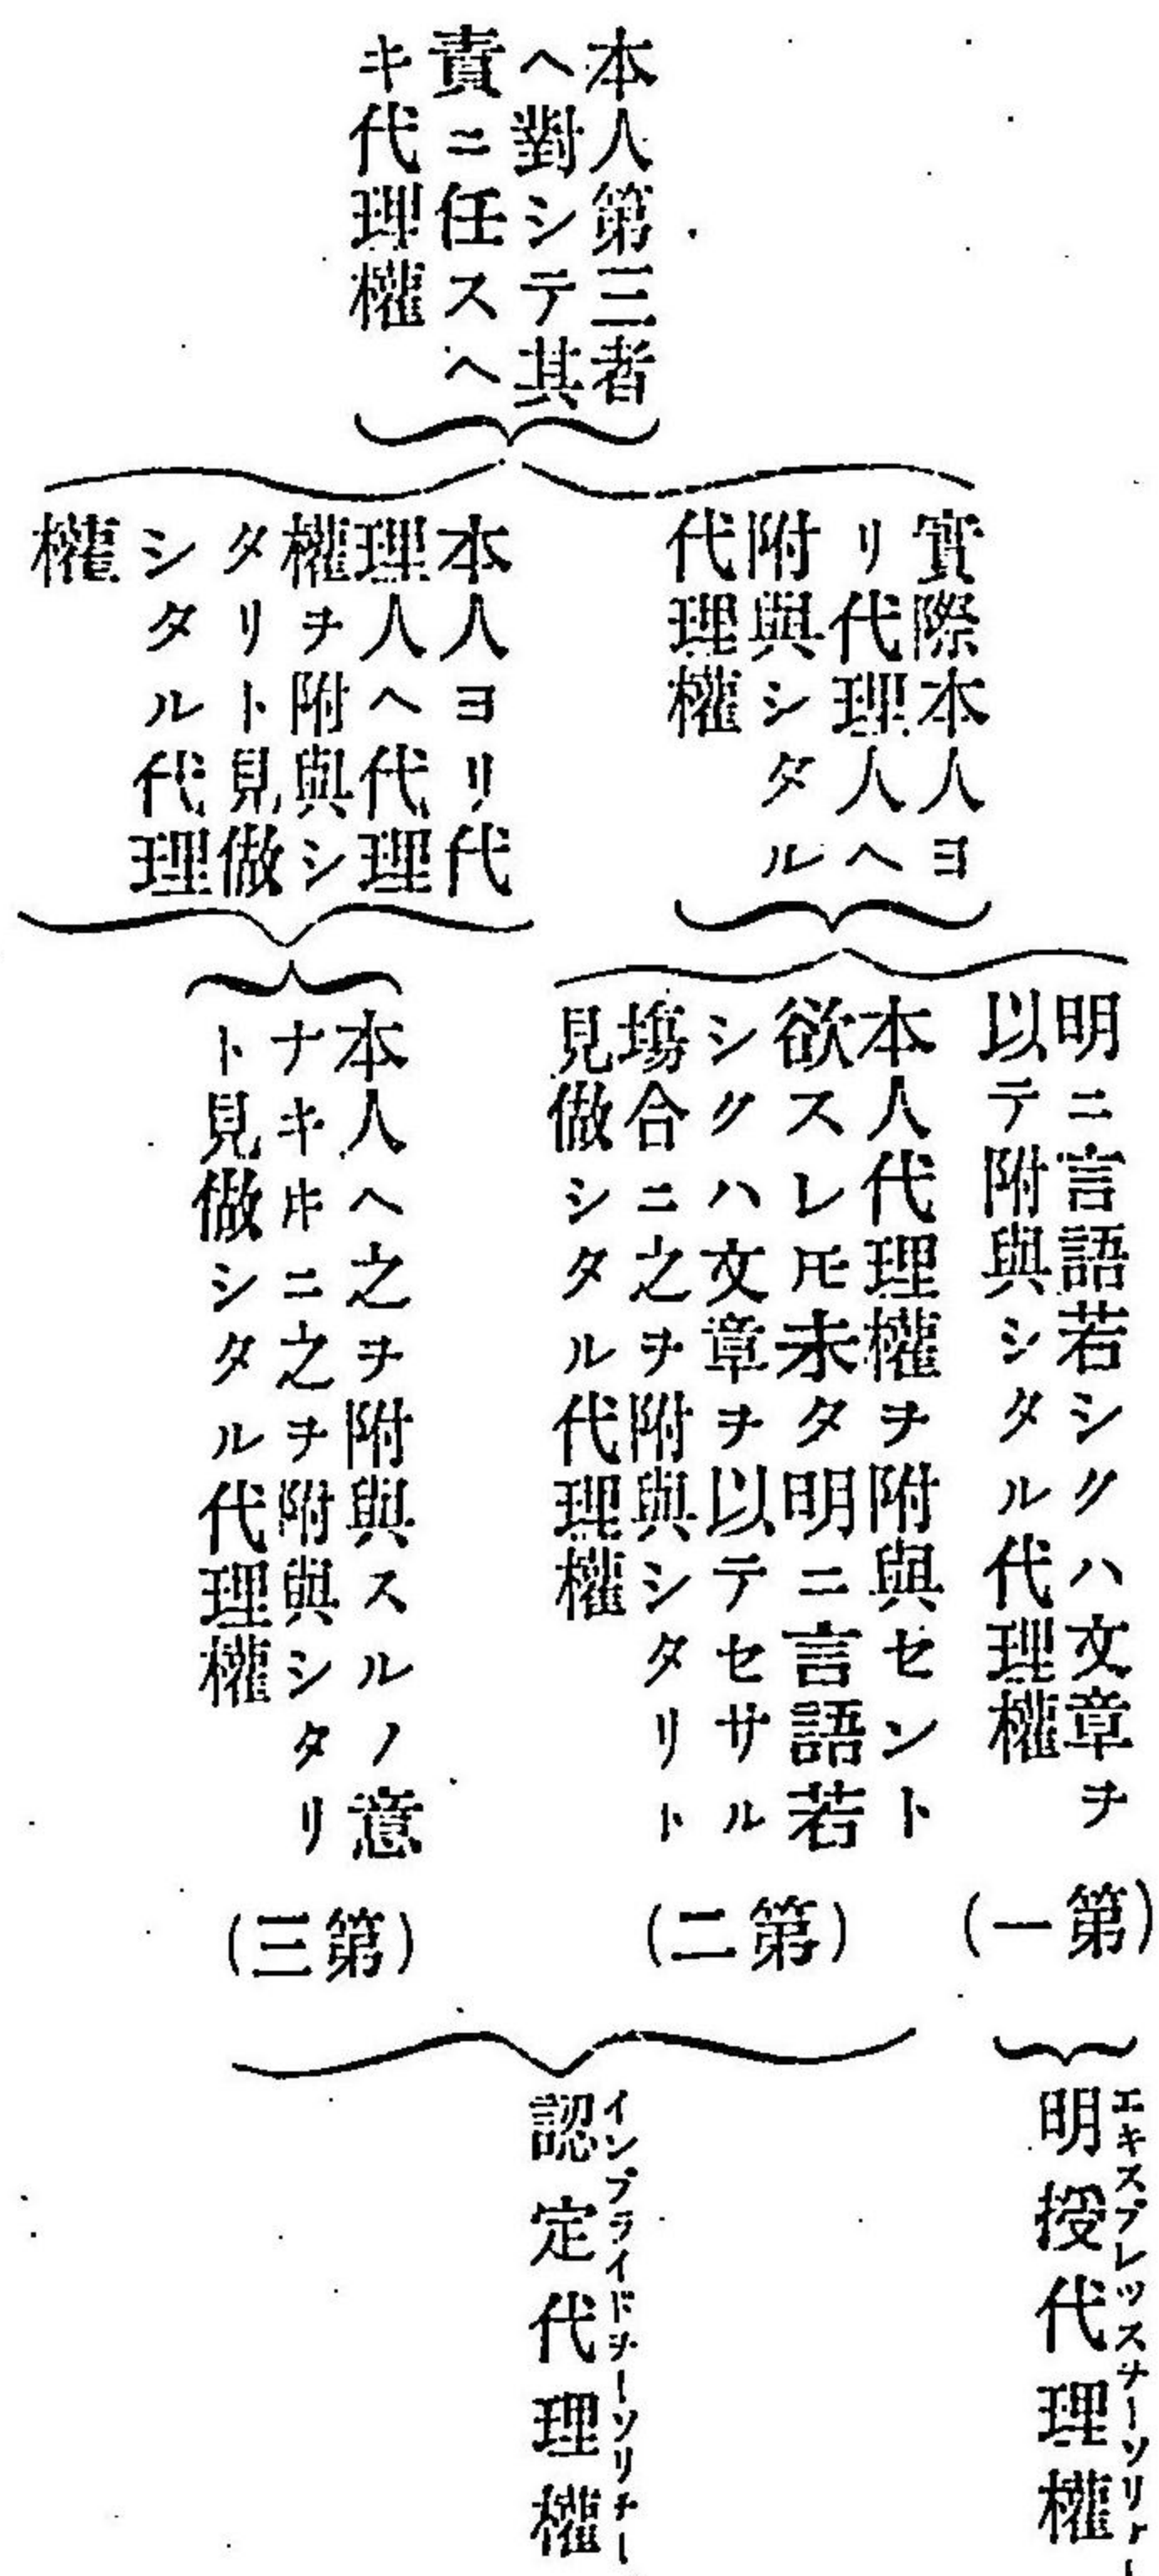 本人第三者
ヘ對シテ其
責ニ任スヘ
キ代理權
實際本人ヨ
リ代理人ヘ
附與シタル
代理權
本人ヨリ代
理人ヘ代理
權ヲ附與シ
タリト見做
シタル代理
權
明ニ言語若シクハ文章ヲ
以テ附與シタル代理權
本人代理權ヲ附與セント
欲スレ𪜈未タ明ニ言語若
シクハ文章ヲ以テセサル
塲合ニ之ヲ附與シタリト
見做シタル代理權
本人ヘ之ヲ附與スルノ意
ナキキニ之ヲ附與シタリ
ト見做シタル代理權
(第一)
(第二)
(第三)
エキスプレッスオーソリチー
明授代理權
インプライドオーソリチー
認定代理權